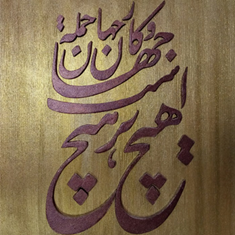 جهان و کار جهان جمله
هیچ بر هیچ است